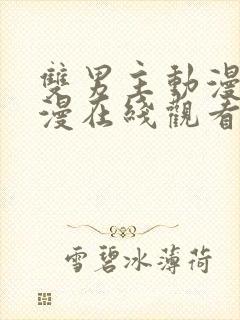 雙男主動漫
漫在綫觀看
雪碧冰薄荷